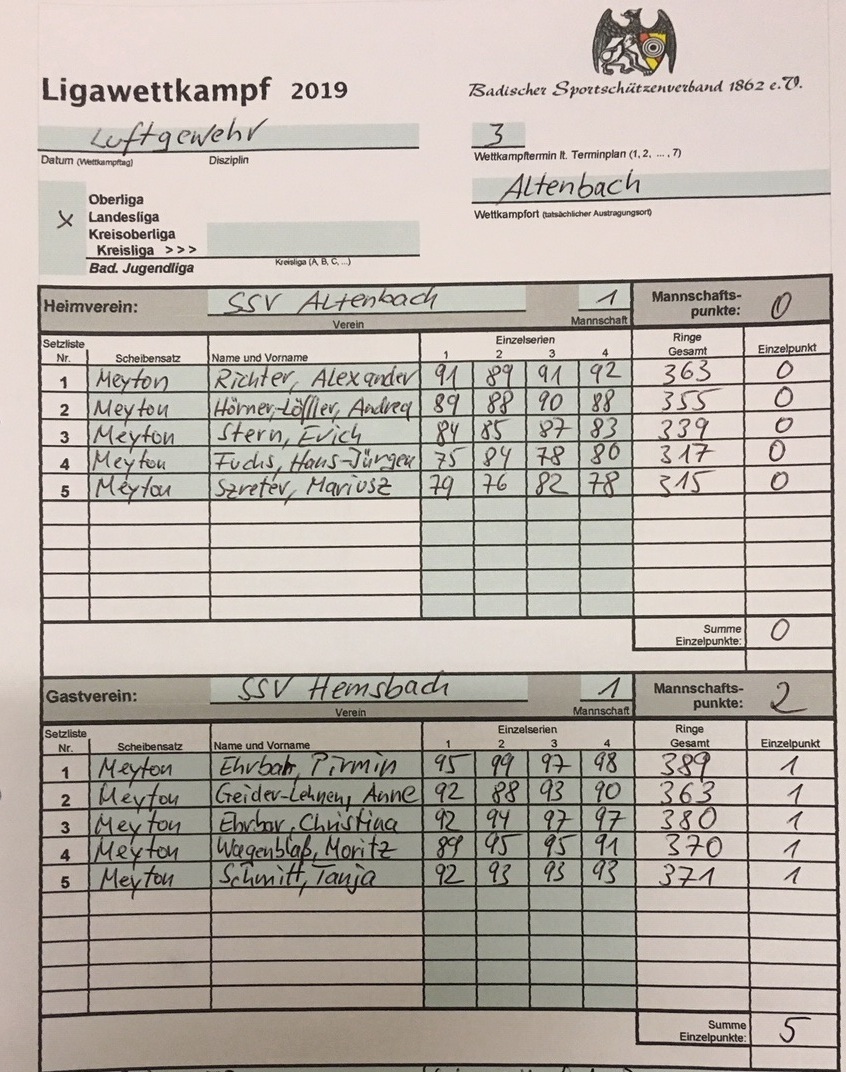 Ligawettkampf 2019
Badischer Sportschützenverband 1862 e.V.
Luftgewehr
Datum (Wettkampftag) Disziplin
3
Wettkampftermin lt. Terminplan (1, 2, ... , 7)
Altenbach
Wettkampfort (tatsächlicher Austragungsort)
Oberliga
X Landesliga
Kreisoberliga
Kreisliga >>>
Kreisliga (A, B, C, ...)
Bad. Jugendliga
Heimverein: SSV Altenbach 1 Mannschafts-punkte: 0
Verein Mannschaft
Setzliste Nr. Scheibensatz Name und Vorname Einzelserien 1 2 3 4 Ringe Gesamt Einzelpunkt
1 Meyton Richter, Alexander 91 89 91 92 363 0
2 Meyton Hörner-Löffler, Andrea 89 88 90 88 355 0
3 Meyton Stern, Erich 84 85 87 83 339 0
4 Meyton Fuchs, Hans-Jürgen 75 84 78 80 317 0
5 Meyton Szreter, Mariusz 79 76 82 78 315 0
Summe Einzelpunkte: 0
Gastverein: SSV Hemsbach 1 Mannschafts-punkte: 2
Verein Mannschaft
Setzliste Nr. Scheibensatz Name und Vorname Einzelserien 1 2 3 4 Ringe Gesamt Einzelpunkt
1 Meyton Ehrbar, Pirmin 95 99 97 98 389 1
2 Meyton Geider-Lehnen, Anne 92 88 93 90 363 1
3 Meyton Ehrbar, Christina 92 94 97 97 380 1
4 Meyton Wagenblaß, Moritz 89 95 95 91 370 1
5 Meyton Schmitt, Tanja 92 93 93 93 371 1
Summe Einzelpunkte: 5